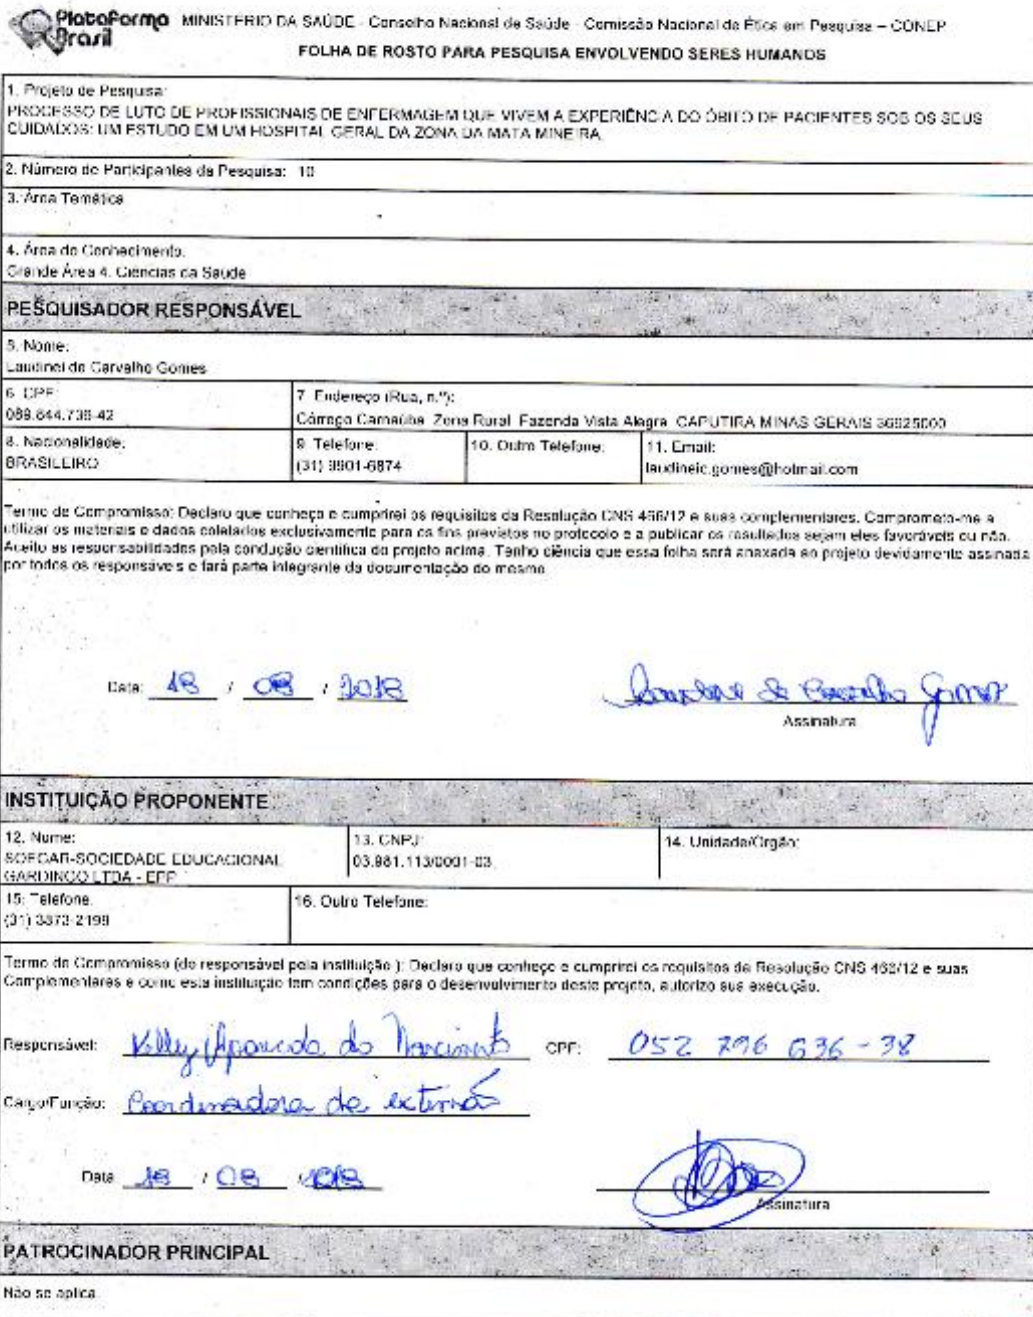 Plataforma Brasil
MINISTÉRIO DA SAÚDE - Conselho Nacional de Saúde - Comissão Nacional de Ética em Pesquisa – CONEP
FOLHA DE ROSTO PARA PESQUISA ENVOLVENDO SERES HUMANOS
1. Projeto de Pesquisa:
PROCESSO DE LUTO DE PROFISSIONAIS DE ENFERMAGEM QUE VIVEM A EXPERIÊNCIA DO ÓBITO DE PACIENTES SOB OS SEUS
CUIDADOS: UM ESTUDO EM UM HOSPITAL GERAL DA ZONA DA MATA MINEIRA.
2. Número de Participantes da Pesquisa: 10
3. Área Temática:
4. Área do Conhecimento:
Grande Área 4. Ciências da Saúde
PESQUISADOR RESPONSÁVEL
5. Nome:
Laudinei de Carvalho Gomes
6. CPF:
7. Endereço (Rua, n.º):
089.644.736-42
Córrego Carnaúba Zona Rural Fazenda Vista Alegre CAPUTIRA MINAS GERAIS 36925000
8. Nacionalidade:
9. Telefone:
10. Outro Telefone:
11. Email:
BRASILEIRO
(31) 9901-6874
laudineic.gomes@hotmail.com
Termo de Compromisso: Declaro que conheço e cumprirei os requisitos da Resolução CNS 466/12 e suas complementares. Comprometo-me a
utilizar os materiais e dados coletados exclusivamente para os fins previstos no protocolo e a publicar os resultados sejam eles favoráveis ou não.
Aceito as responsabilidades pela condução científica do projeto acima. Tenho ciência que essa folha será anexada ao projeto devidamente assinada
por todos os responsáveis e fará parte integrante da documentação do mesmo.
Data: 18 / 08 / 2018
Laudinei de Carvalho Gomes
Assinatura
INSTITUIÇÃO PROPONENTE
12. Nome:
13. CNPJ:
14. Unidade/Órgão:
SOEGAR-SOCIEDADE EDUCACIONAL
03.981.113/0001-03
GARDINGO LTDA - EPP
15. Telefone:
16. Outro Telefone:
(31) 3873-2199
Termo de Compromisso (do responsável pela instituição ): Declaro que conheço e cumprirei os requisitos da Resolução CNS 466/12 e suas
Complementares e como esta instituição tem condições para o desenvolvimento deste projeto, autorizo sua execução.
Responsável: Kelley Aparecida do Nascimento CPF: 052 796 636 - 38
Cargo/Função: Coordenadora de extensão
Data: 18 / 08 / 2018
Assinatura
PATROCINADOR PRINCIPAL
Não se aplica.